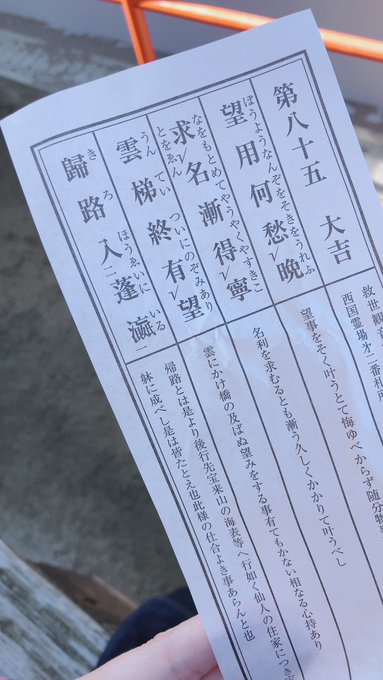 第八十五 大吉
救世観
西国霊場オ二番札所
ぼうようなんぞをそきをうれふ
望用何愁レ晩
望事をそく叶うとて悔ゆべからず随分
なをもとめてやうやくやすきことをゑん
求レ名漸得レ寧
名利を求むるとも漸う久しくかかりて叶うべし
うんていついにのぞみあり
雲梯終有レ望
雲にかけ橋の及ばぬ望みをする事有てもかない相なる心持あり
きろほうゑいにいる
歸路入二蓬瀛一
帰路とは是より後行先宝来山の海表等へ行如く仙人の住家につき
躰に成べし是は皆たとえ也此様の仕合よき事あらんと也